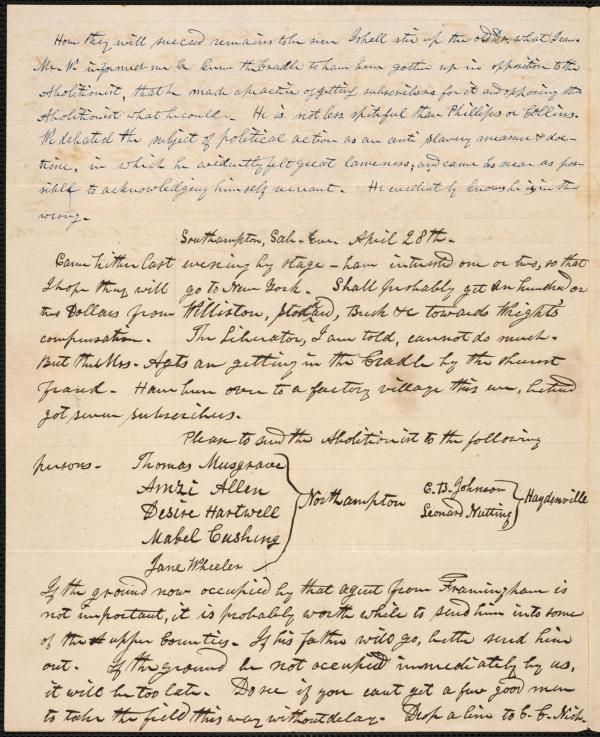 How they will succeed remains to be seen I shall stir up the old Dr. what I can.
Mr. W. informed me he knew the Cradle to have been gotten up in opposition to the
Abolitionist, that he made a practice of getting subscribers for it and opposing the
Abolitionist what he could. He is not less spiteful than Phillips or Collins.
We debated the subject of political action as an anti slavery measure & doc-
trine, in which he evidently felt great lameness, and came as near as pos-
sible to acknowledging himself recreant. He evidently knows he is in the
wrong.
Southampton, Sab. Eve. April 28th.
Came hither last evening by stage - have interested one or two, so that
I hope they will go to New York. Shall probably get an hundred or
two Dollars from Williston, Stoddard, Buck &c towards Wright's
compensation. The Liberator, I am told, cannot do much.
But the Mrs. Agts are getting in the Cradle by the
fraud. Have been over to a factory village this eve,
got seven subscribers.
Please to send the Abolitionist to the following
persons - Thomas Musgrave
Amzi Allen
Desire Hartwell
Mabel Cushing
Jane Wheeler
Northampton
E. B. Johnson
Leonard Nutting
Haydenville
If the ground now occupied by that agent from Framingham is
not important, it is probably worth while to send him into some
of the upper Counties. If his father will go, better send him
out. If the ground be not occupied immediately by us,
it will be too late. Do see if you cant get a few good men
to take the field this way without delay. Drop a line to C. C. Nich.